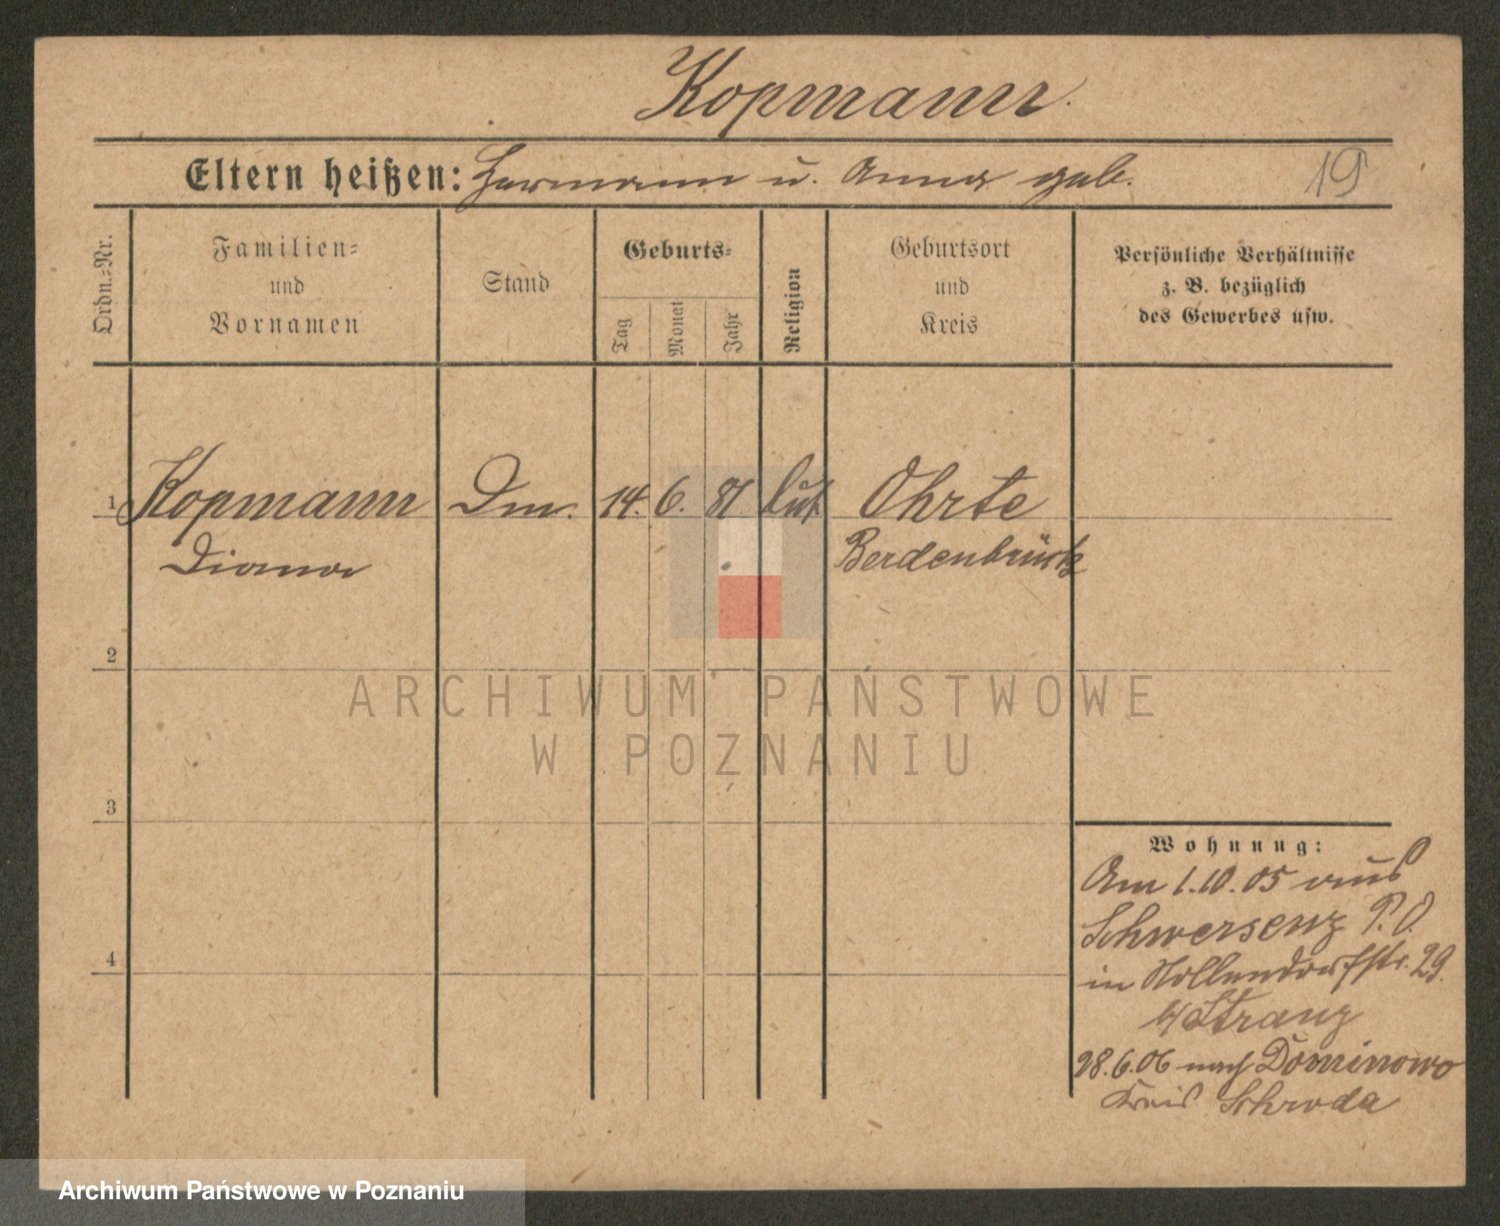 Kopmann.
Eltern heißen: Hermann u. Anna geb.
19
Ordn.=Nr.
Familien=
und
Vornamen
Stand
Geburts=
Tag
Monat
Jahr
Religion
Geburtsort
und
Kreis
Persönliche Verhältnisse
z. B. bezüglich
des Gewerbes usw.
1 Kopmann 14. 6. 81 Lut Ohrte
Diana Berdenbrück
2
3
4
Wohnung:
Am 1.10.05 aus
Schwersenz P. O.
in Hollendorfstr. 29.
b/ Stranz
28.6.06 nach Dominowo
Kreis Schroda
ARCHIWUM PAŃSTWOWE
W POZNANIU
Archiwum Państwowe w Poznaniu